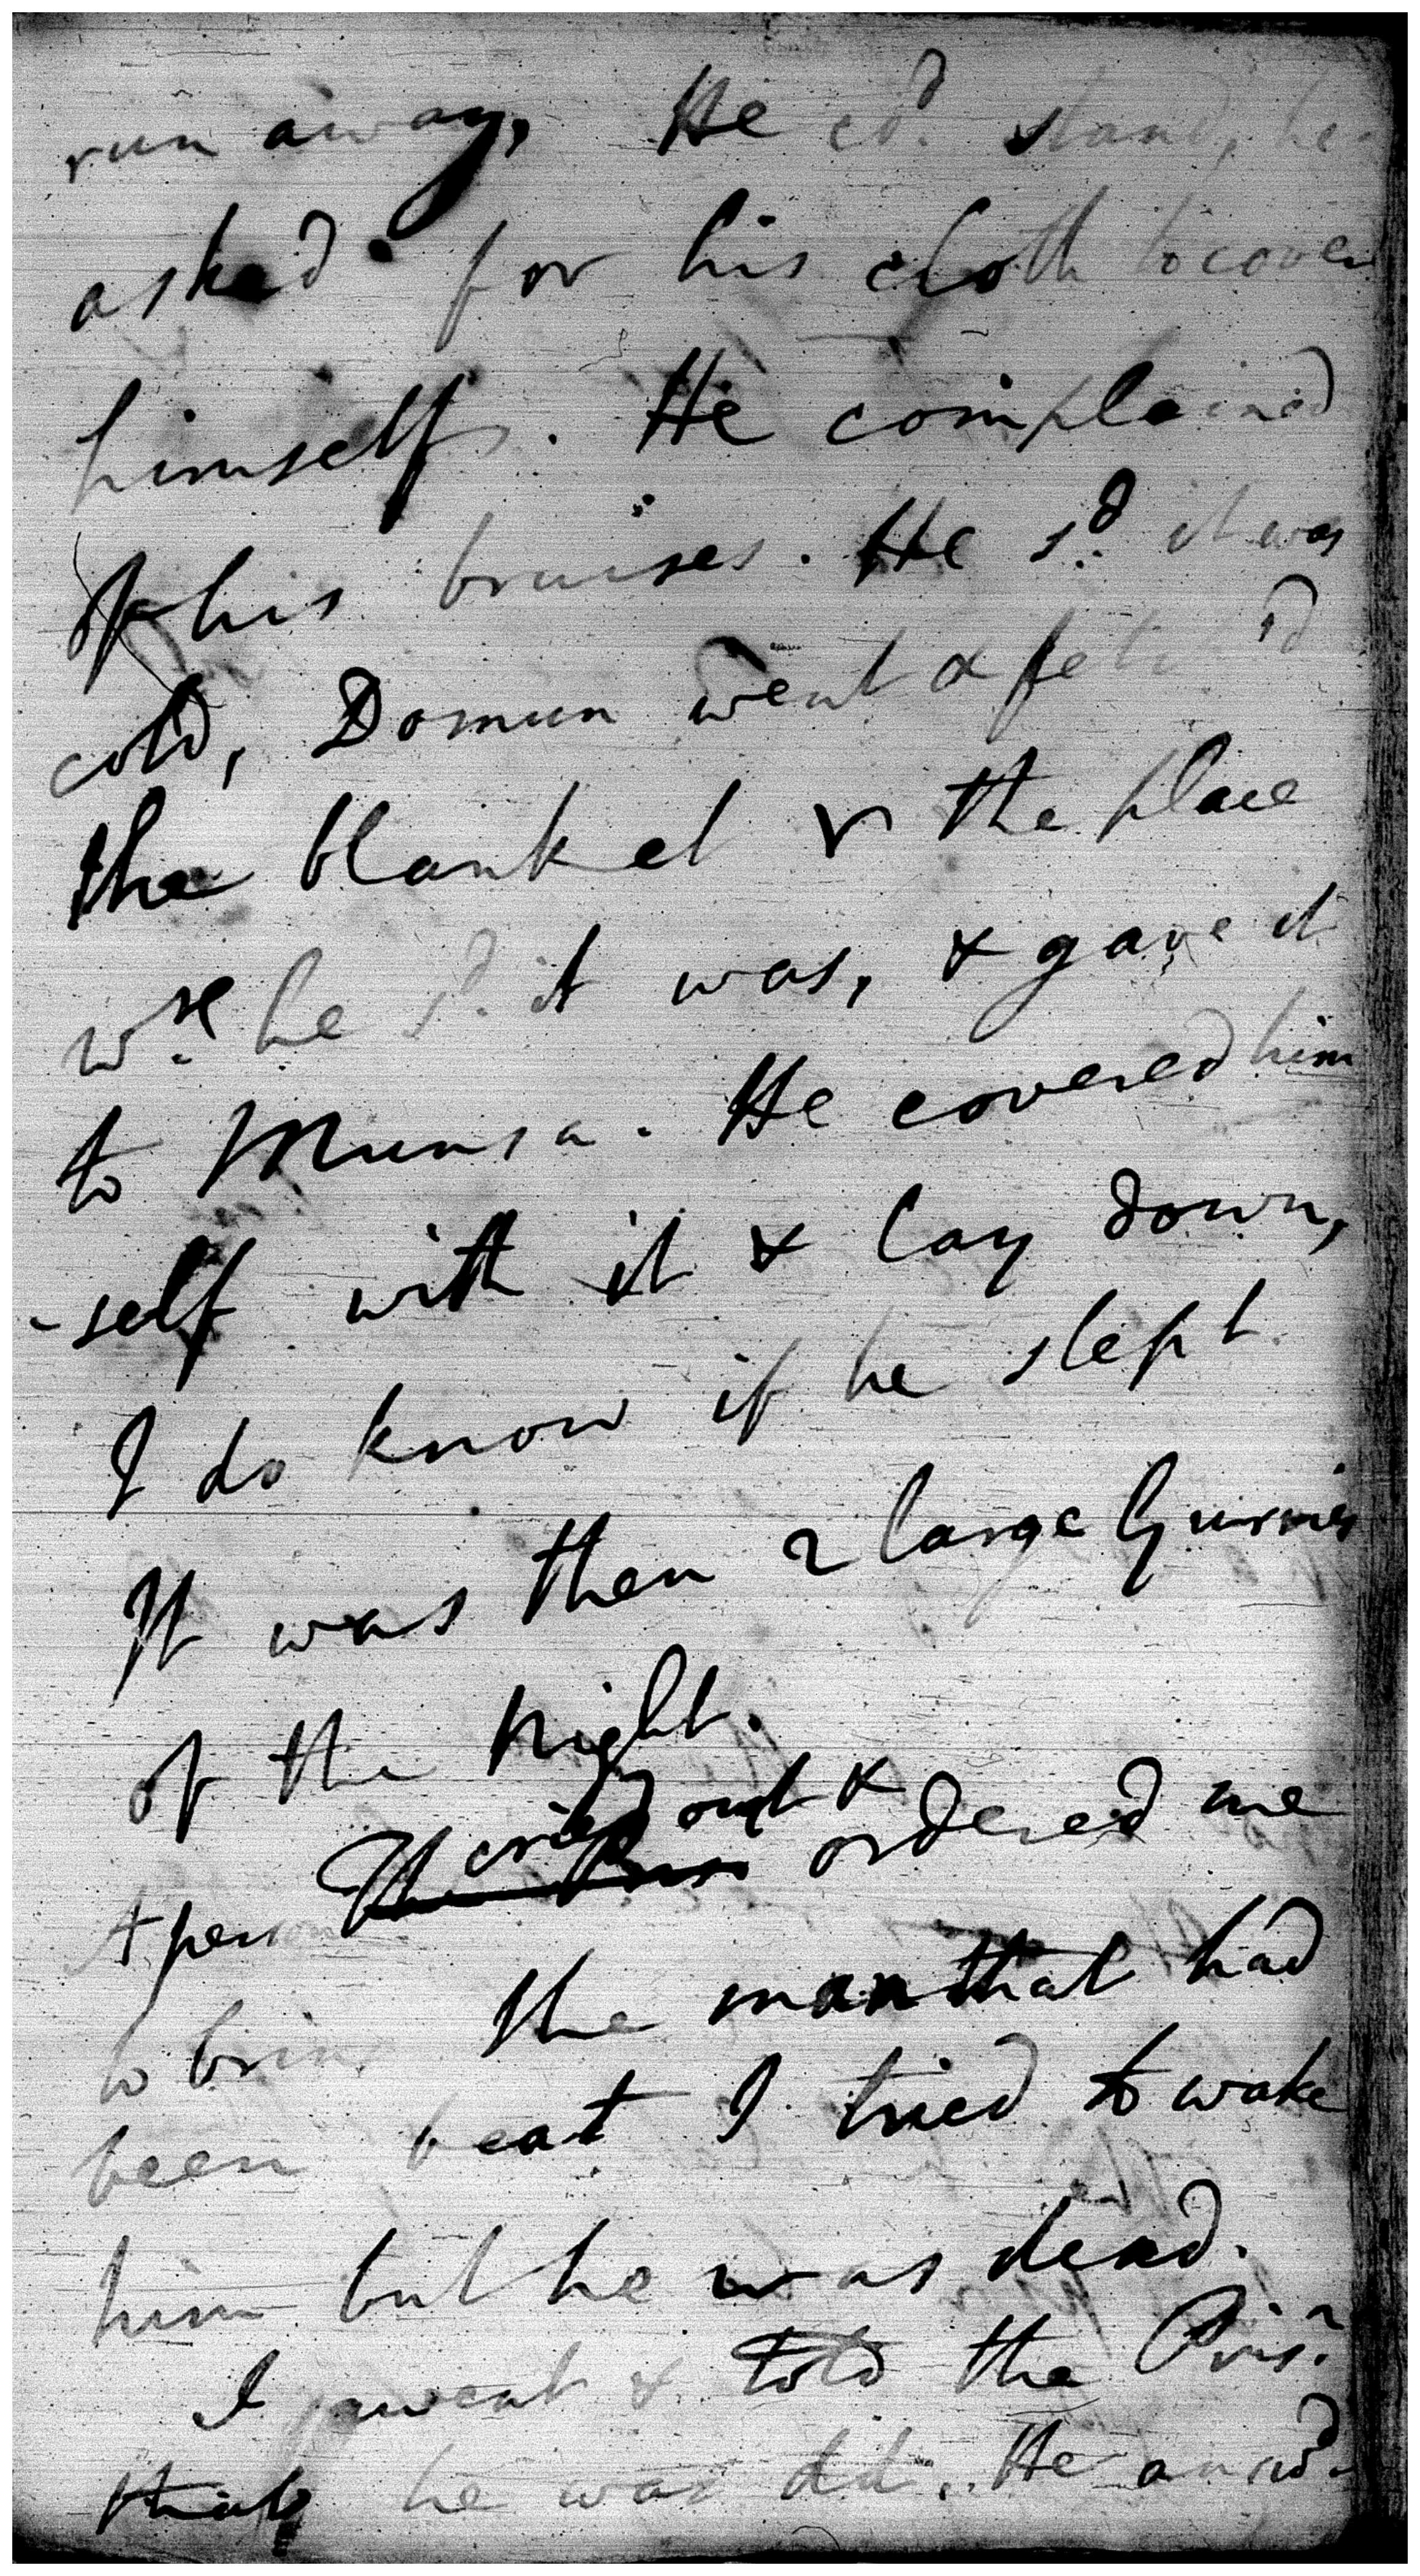 run away, He cd. stand, he
asked for his cloth to cover
himself. He complained
of his bruises. He sd. it was
cold, Domun went & fetch'd
the blanket fr the place
wre. he sd. it was, & gave it
to Munsa. He covered him
-self with it & lay down,
I do know if he slept.
It was then 2 large Gurries
of the Night.
cried out &
A person The Pris ordered me
to bring the man that had
been beat I tried to wake
him but he was dead.
I went & told the Prisr.
that he was dd. He answd.